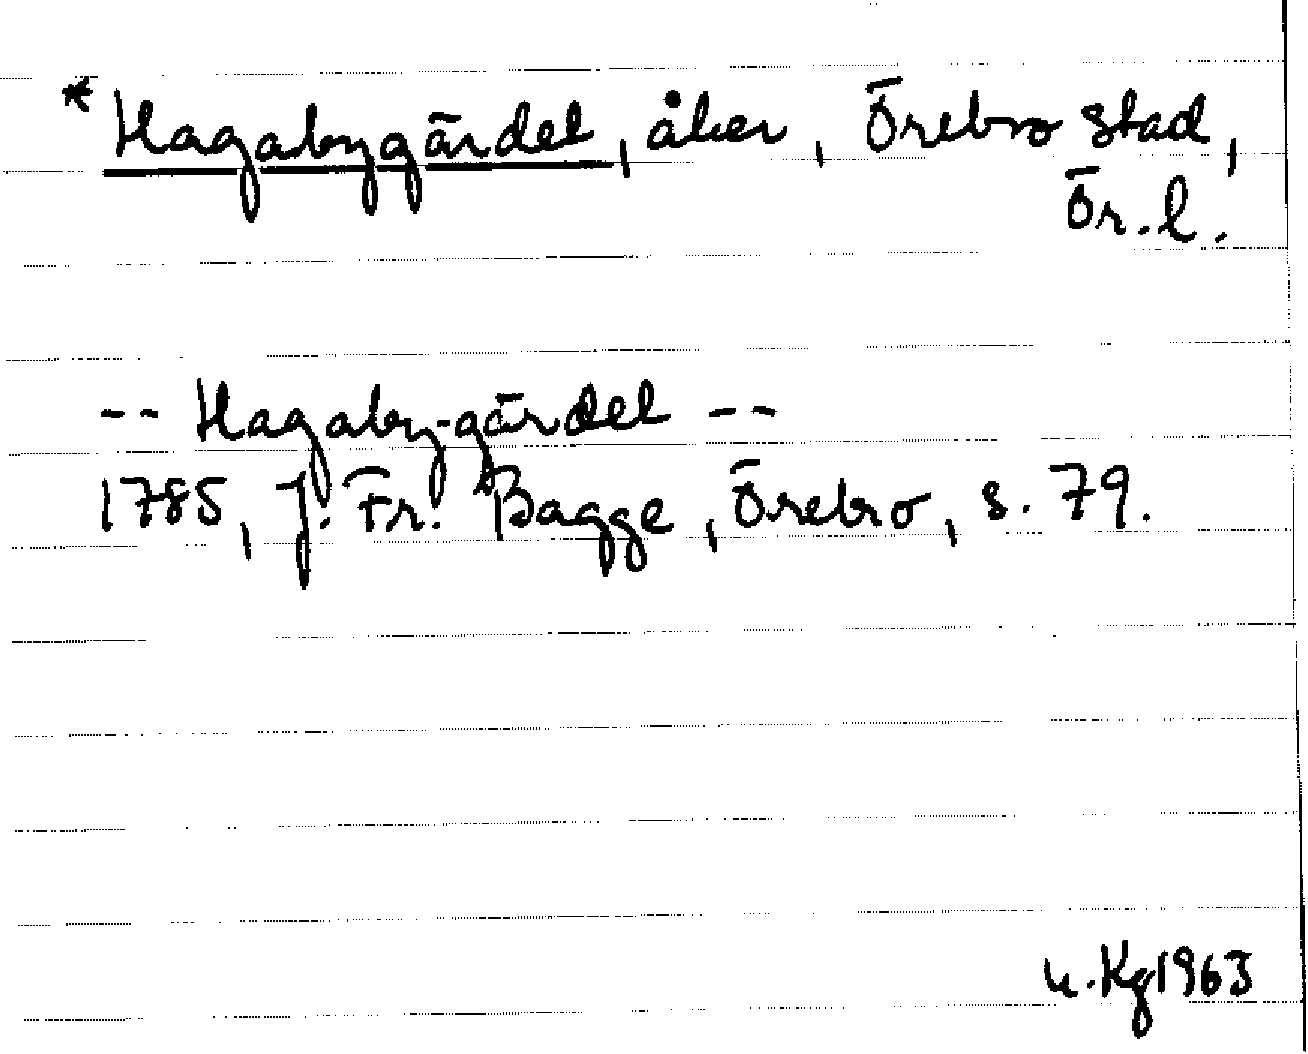 *Hagabygärdet, åker, Örebro stad,
Ör.l.
-- Hagaby-gärdet --
1785, J. Fr. Bagge, Örebro, s. 79.
u. Kg 1963